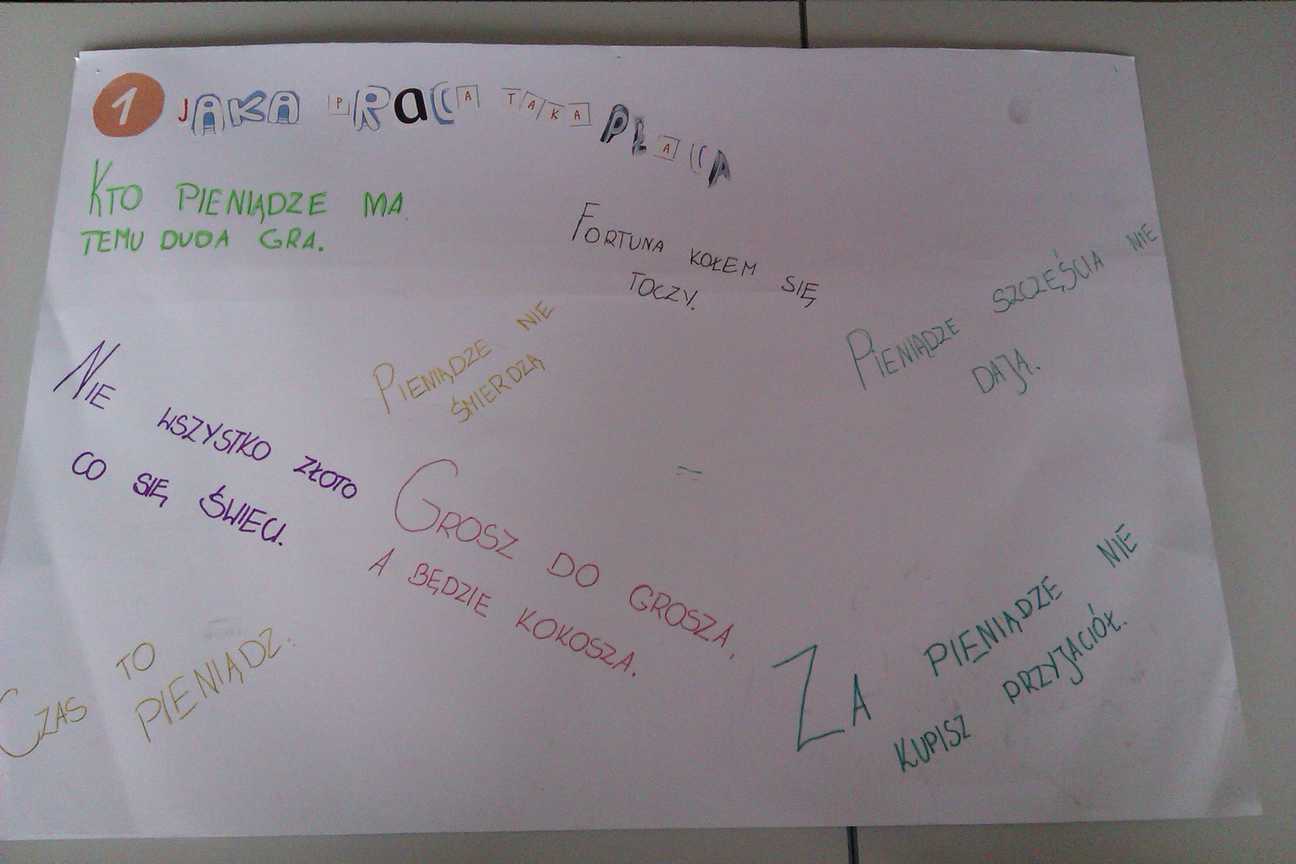 1 JAKA PRACA TAKA PŁACA
KTO PIENIĄDZE MA
TEMU DUDA GRA.
FORTUNA KOŁEM SIĘ
TOCZY.
PIENIĄDZE NIE
ŚMIERDZĄ
PIENIĄDZE SZCZĘŚCIA NIE
DAJĄ.
NIE WSZYSTKO ZŁOTO
CO SIĘ ŚWIECI.
GROSZ DO GROSZA,
A BĘDZIE KOKOSZA.
CZAS TO
PIENIĄDZ.
ZA PIENIĄDZE NIE
KUPISZ PRZYJACIÓŁ.